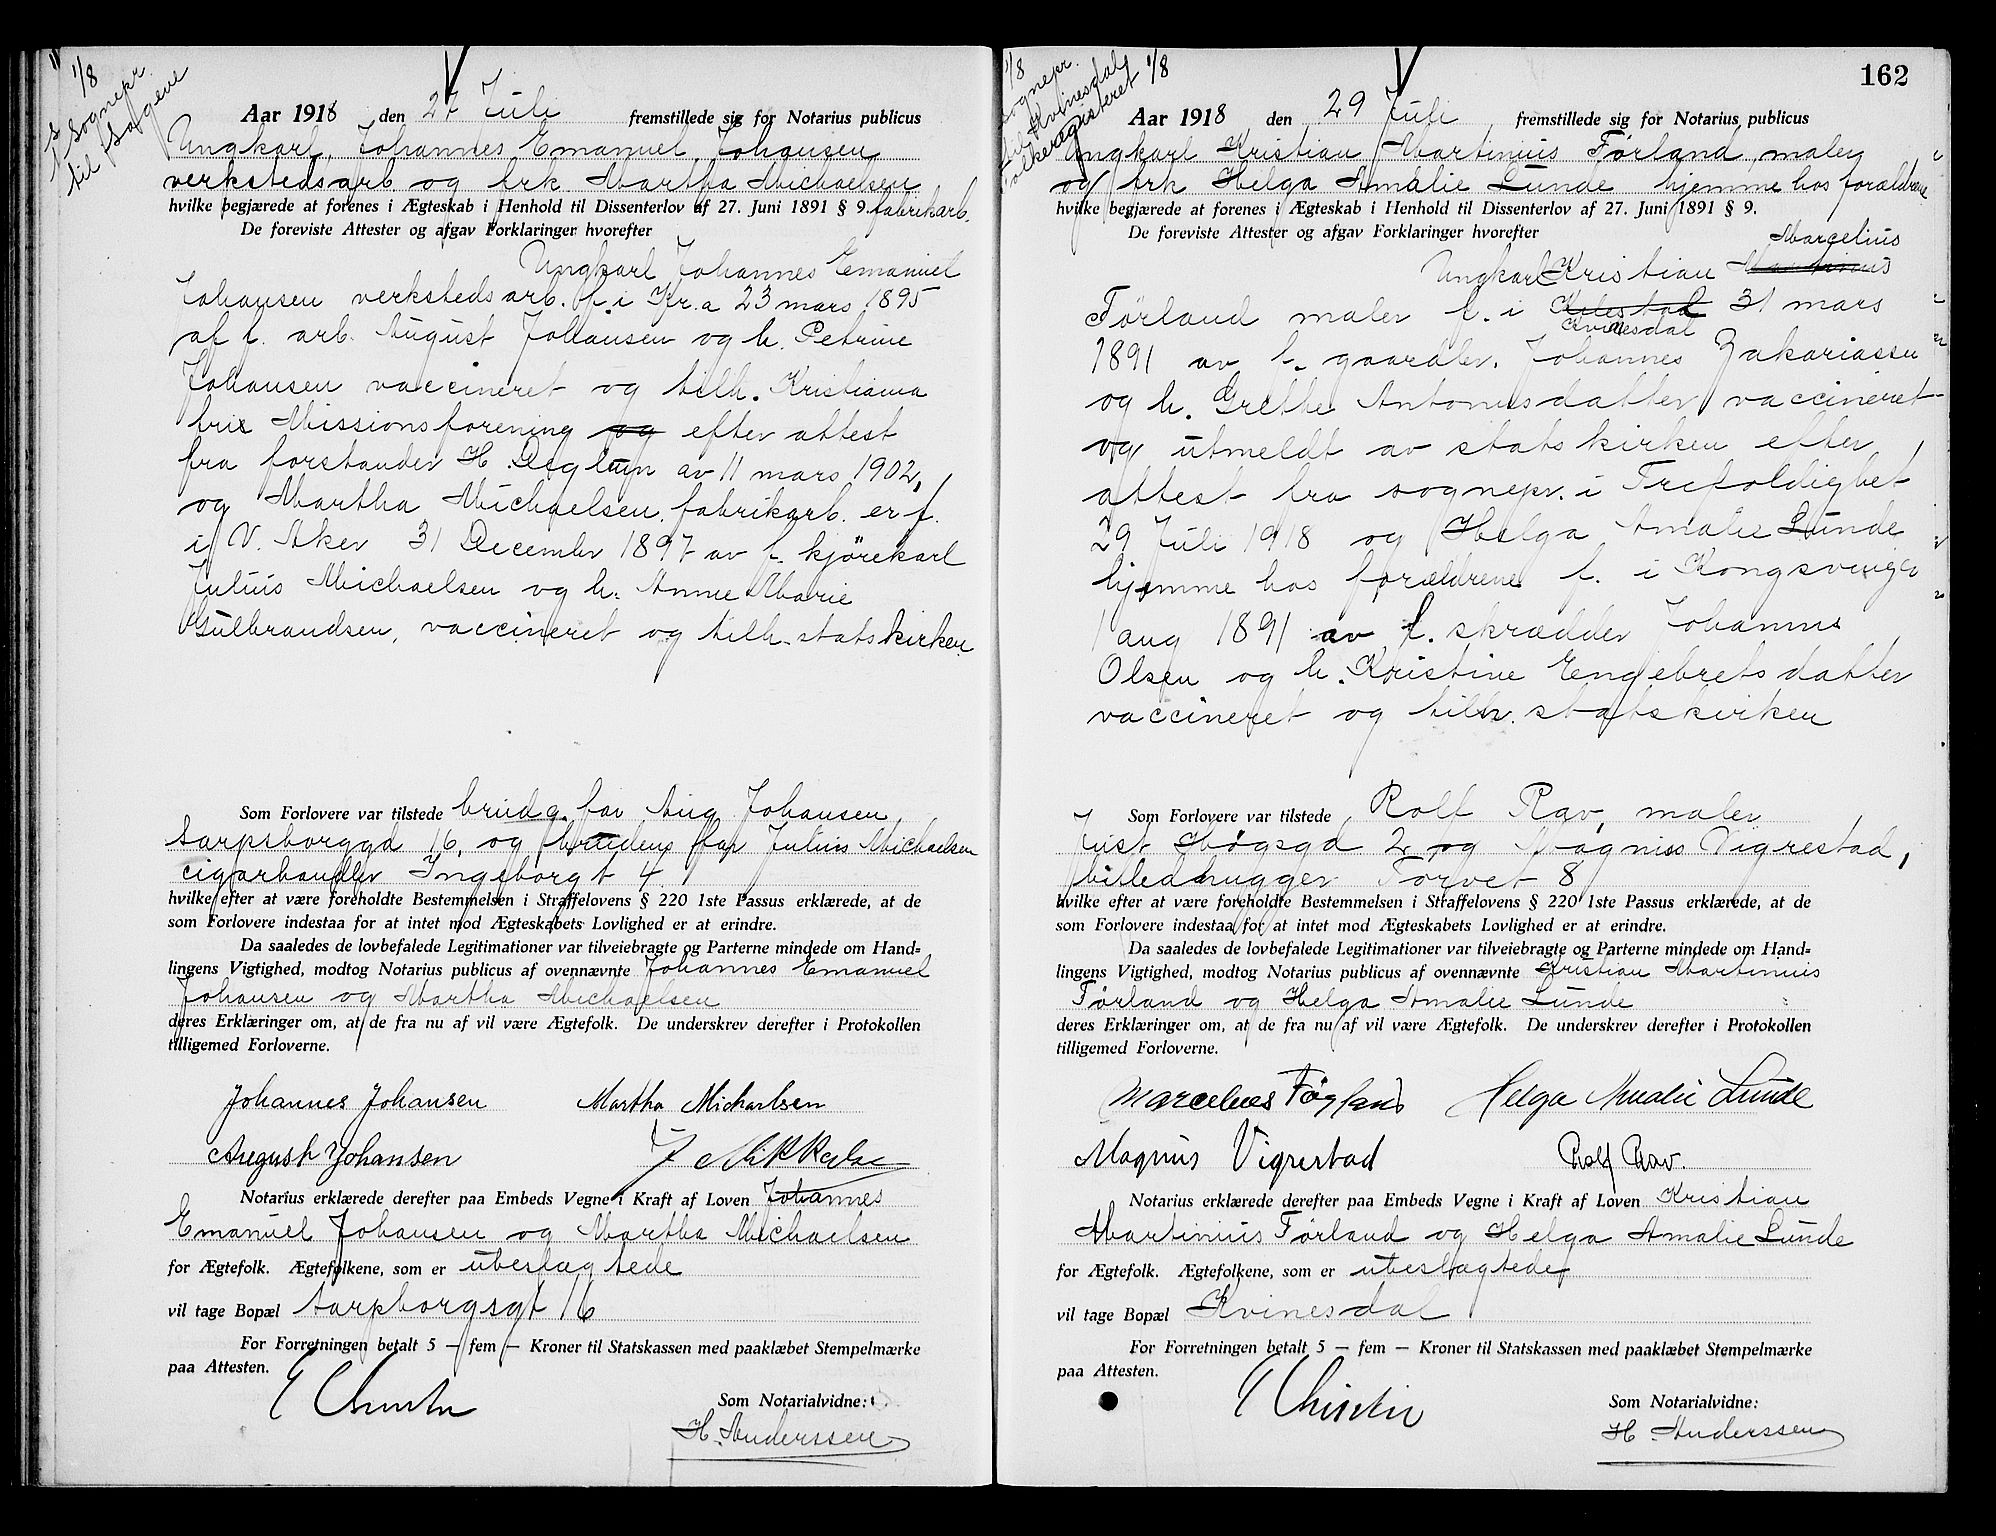 1/8
S. Sognepr.
til Sagene
Aar 1918 den 27 Juli fremstillede sig for Notarius publicus
Ungkarl, Johannes Emanuel Johansen
verkstedsarb. og frk. Martha Michaelsen
hvilke begjærede at forenes i Ægteskab i Henhold til Dissenterlov af 27. Juni 1891 § 9. fabrikarb.
De foreviste Attester og afgav Forklaringer hvorefter
Ungkarl Johannes Emanuel
Johansen verkstedsarb. f. i Kr.a 23 mars 1895
af f. arb. August Johansen og h. Petrine
Johansen vaccineret og tilh. Kristiania
frie Missionsforening og efter attest
fra forstander H. av 11 mars 1902,
og Martha Michaelsen. fabrikarb. er f.
i V. Aker 31 December 1897 av f. kjørekarl
Julius Michaelsen og h. Anne Marie
Gulbrandsen, vaccineret og tilh. statskirken
Som Forlovere var tilstede brudg. far Aug Johansen
Sarpsborggd 16, og brudens far Julius Michaelsen
cigarhandler Ingeborgt 4
hvilke efter at være foreholdte Bestemmelsen i Straffelovens § 220 1ste Passus erklærede, at de
som Forlovere indestaa for at intet mod Ægteskabets Lovlighed er at erindre.
Da saaledes de lovbefalede Legitimationer var tilveiebragte og Parterne mindede om Hand-
lingens Vigtighed, modtog Notarius publicus af ovennævnte Johannes Emanuel
Johansen og Martha Michaelsen
deres Erklæringer om, at de fra nu af vil være Ægtefolk. De underskrev derefter i Protokollen
tilligemed Forloverne.
Johannes Johansen Martha Michaelsen
August Johansen J Mikkelse
Notarius erklærede derefter paa Embeds Vegne i Kraft af Loven Johannes
Emanuel Johansen og Martha Michaelsen
for Ægtefolk. Ægtefolkene, som er ubeslagtede
vil tage Bopæl Sarpborgsgt 16
For Forretningen betalt 5 — fem — Kroner til Statskassen med paaklæbet Stempelmærke
paa Attesten.
Som Notarialvidne:
H. Anderssen
162
1/8
Sognepr.
til Kvinesdal
folkeregisteret 1/8
Aar 1918 den 29 Juli fremstillede sig for Notarius publicus
Ungkarl Kristian Martinius Førland, maler
og frk Helga Amalie Lunde hjemme hos forældrene
hvilke begjærede at forenes i Ægteskab i Henhold til Dissenterlov af 27. Juni 1891 § 9.
De foreviste Attester og afgav Forklaringer hvorefter
Marcelius
Ungkarl Kristian Martinius
Førland maler f. i 31 mars
Kvinesdal
1891 av f. gaardbr. Johannes Zakariassen
og h. Grethe Antonusdatter vaccineret
og utmeldt av statskirken efter
attest fra sognepr. i Trefoldighet
29 Juli 1918 og Helga Amalie Lunde
hjemme hos forældrene f. i Kongsvinger
1 aug 1891 av f. skrædder Johannes
Olsen og h. Kristine Engebretsdatter
vaccineret og tilh. statskirken
Som Forlovere var tilstede Rolf Rav, maler
Just Høgsgd 2 og Magnus Vigrestad,
billedhugger Torvet 8
hvilke efter at være foreholdte Bestemmelsen i Straffelovens § 220 1ste Passus erklærede, at de
som Forlovere indestaa for at intet mod Ægteskabets Lovlighed er at erindre.
Da saaledes de lovbefalede Legitimationer var tilveiebragte og Parterne mindede om Hand-
lingens Vigtighed, modtog Notarius publicus af ovennævnte Kristian Martinius
Førland og Helga Amalie Lunde
deres Erklæringer om, at de fra nu af vil være Ægtefolk. De underskrev derefter i Protokollen
tilligemed Forloverne.
Marcelius Førland Helga Amalie Lunde
Magnus Vigrestad Rolf Rav.
Notarius erklærede derefter paa Embeds Vegne i Kraft af Loven Kristian
Martinius Førland og Helga Amalie Lunde
for Ægtefolk. Ægtefolkene, som er ubeslagtede
vil tage Bopæl Kvinesdal
For Forretningen betalt 5 — fem — Kroner til Statskassen med paaklæbet Stempelmærke
paa Attesten.
Som Notarialvidne:
H. Anderssen